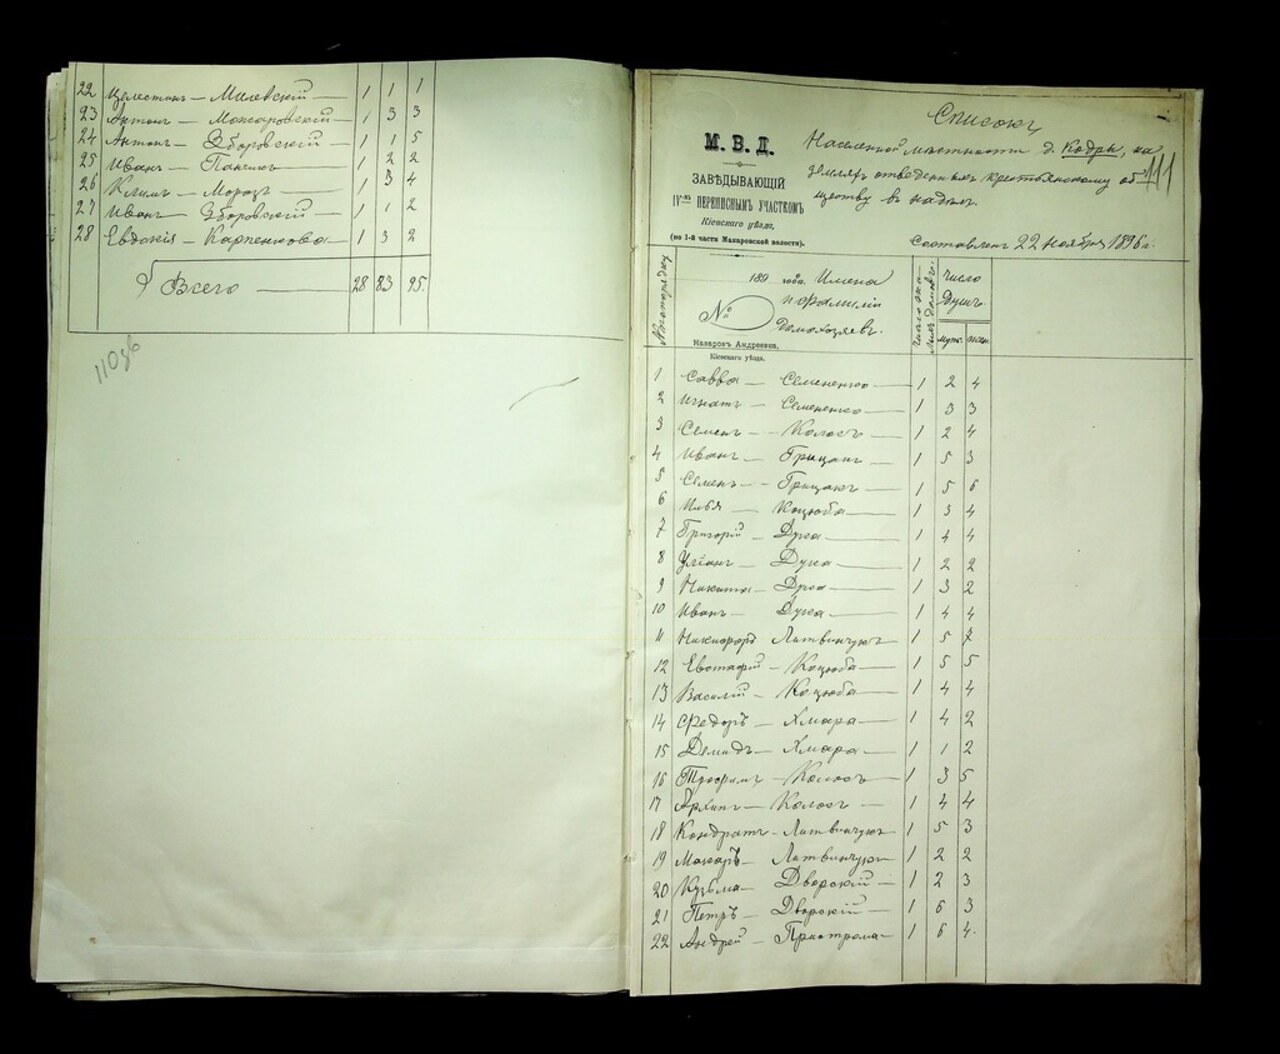 22 Целестинъ — Милевскій — 1 1 1
23 Антонъ —Можаровскій — 1 3 3
24 Антонъ — Зборовскій — 1 1 5
25 Иванъ — 1 2 2
26 Климъ — Морозъ — 1 3 4
27 Иванъ — Зборовскій — 1 1 2
28 Евдокія — Карпенкова — 1 3 2
Всего — 28 83 95.
110
Списокъ
Населенной мѣстности д. Кодры, на
земляхъ отведенныхъ крестьянскому об-
ществу въ надѣлъ.
111
М. В. Д.
ЗАВѢДЫВАЮЩІЙ
IV-мъ ПЕРЕПИСНЫМЪ УЧАСТКОМЪ
Кіевскаго уѣзда,
(по 1-й части Макаровской волости).
Составленъ 22 ноября 1896 г.
№ по порядку
189 года.
№
Назаровъ Андреевка,
Кіевскаго уѣзда.
Имена
и фамиліи
домохозяевъ.
Число
Душъ.
муж. жен.
1 Савва — Семененко — 1 2 4
2 Игнатъ — Семененко — 1 3 3
3 Семенъ — Колосъ — 1 2 4
4 Иванъ — Грицакъ — 1 5 3
5 Семенъ — Грицакъ — 1 5 6
6 Илья — Коцюба — 1 3 4
7 Григорій — Дука — 1 4 4
8 Уліанъ — Дука — 1 2 2
9 Никита — Дука — 1 3 2
10 Иванъ — Дука — 1 4 4
11 Никифоръ Литвинчукъ — 1 5 7
12 Евстафій — Коцюба — 1 5 5
13 Василій — Коцюба — 1 4 4
14 Федоръ — Хмара — 1 4 2
15 Демидъ — Хмара — 1 1 2
16 Трофимъ — Колосъ — 1 3 5
17 Архипъ — Колосъ — 1 4 4
18 Кондратъ — Литвинчукъ 1 5 3
19 Макаръ — Литвинчукъ 1 2 2
20 Кузьма — Дворскій — 1 2 3
21 Петръ — Дворскій — 1 6 3
22 Андрей — Пристрома — 1 6 4.